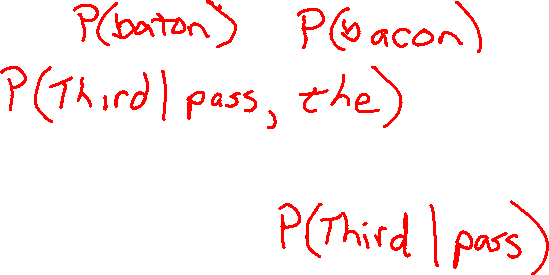 P(baton) P(bacon)
P(Third | pass, the)
P(Third | pass)